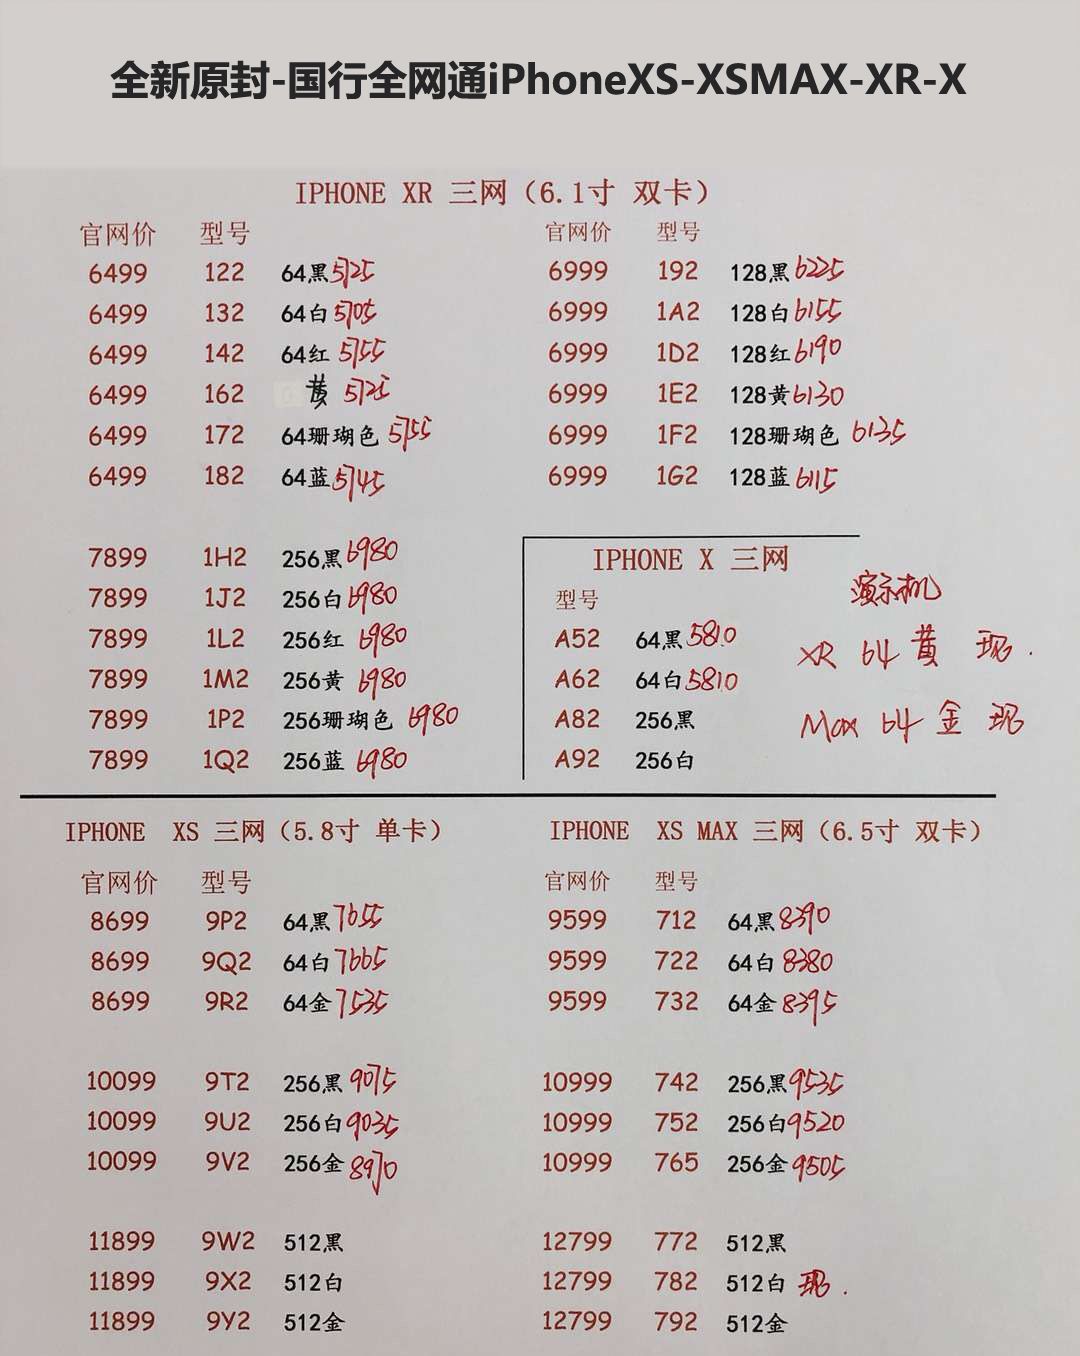 全新原封-国行全网通iPhoneXS-XSMAX-XR-X
IPHONE XR 三网（6.1寸 双卡）
官网价 型号
6499 122 64黑 5725
6499 132 64白 5705
6499 142 64红 5755
6499 162 黄 5725
6499 172 64珊瑚色 5755
6499 182 64蓝 5745
官网价 型号
6999 192 128黑 6225
6999 1A2 128白 6155
6999 1D2 128红 6190
6999 1E2 128黄 6130
6999 1F2 128珊瑚色 6135
6999 1G2 128蓝 6115
7899 1H2 256黑 6980
7899 1J2 256白 6980
7899 1L2 256红 6980
7899 1M2 256黄 6980
7899 1P2 256珊瑚色 6980
7899 1Q2 256蓝 6980
IPHONE X 三网
型号
A52 64黑 5810
A62 64白 5810
A82 256黑
A92 256白
演示机
XR 64 黄 现.
Max 64 金 现
IPHONE XS 三网（5.8寸 单卡）
官网价 型号
8699 9P2 64黑 7655
8699 9Q2 64白 7665
8699 9R2 64金 7535
10099 9T2 256黑 9075
10099 9U2 256白 9035
10099 9V2 256金 8970
11899 9W2 512黑
11899 9X2 512白
11899 9Y2 512金
IPHONE XS MAX 三网（6.5寸 双卡）
官网价 型号
9599 712 64黑 8390
9599 722 64白 8380
9599 732 64金 8395
10999 742 256黑 9535
10999 752 256白 9520
10999 765 256金 9505
12799 772 512黑
12799 782 512白 现.
12799 792 512金